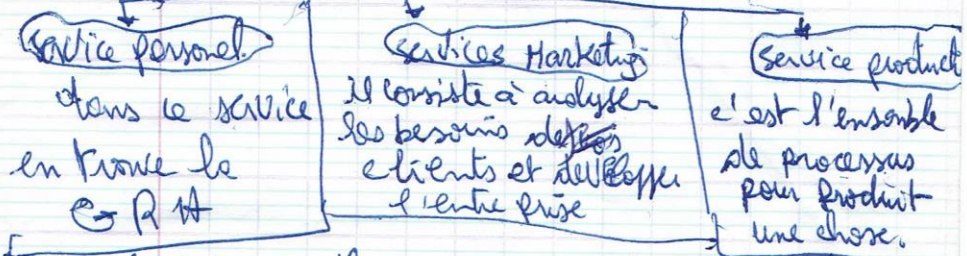 service personel
dans ce service
en trouve la
GRH
services Marketing
il consiste à analyser
les besoins des
clients et developper
l'entreprise
service product
c'est l'ensemble
de processus
pour produit
une chose.